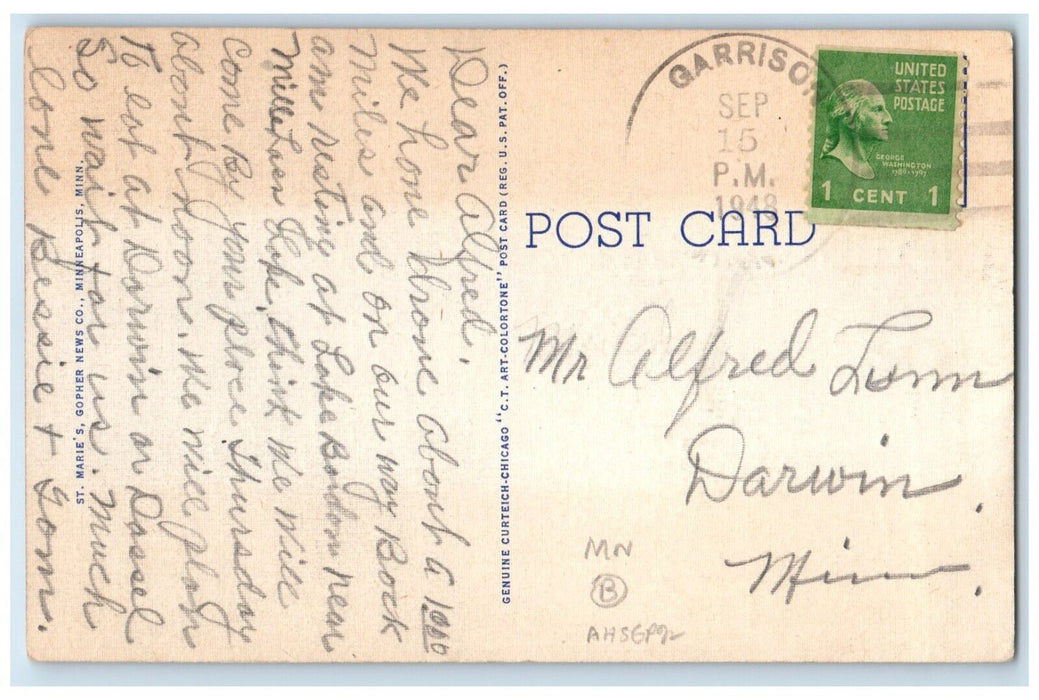 Dear Alfred.
We hone drone about a 1000
Miles and on our way Back
ame resting at Lake Borden near
Mille Lacs Lake, think We Will
Come By your place Thursday
about noon. We will plan
To eat at Darwin or Dassel
So wait for us. Much
Love Bessie + Tom.
ST. MARIE'S, GOPHER NEWS CO., MINNEAPOLIS, MINN.
GENUINE CURTEICH-CHICAGO "C.T. ART-COLORTONE" POST CARD (REG. U.S. PAT. OFF.)
GARRISON
SEP
15
P.M.
1948
UNITED
STATES
POSTAGE
GEORGE
WASHINGTON
1789-1797
1 CENT 1
POST CARD
Mr Alfred Lunn
Darwin.
Minn.
MN
B